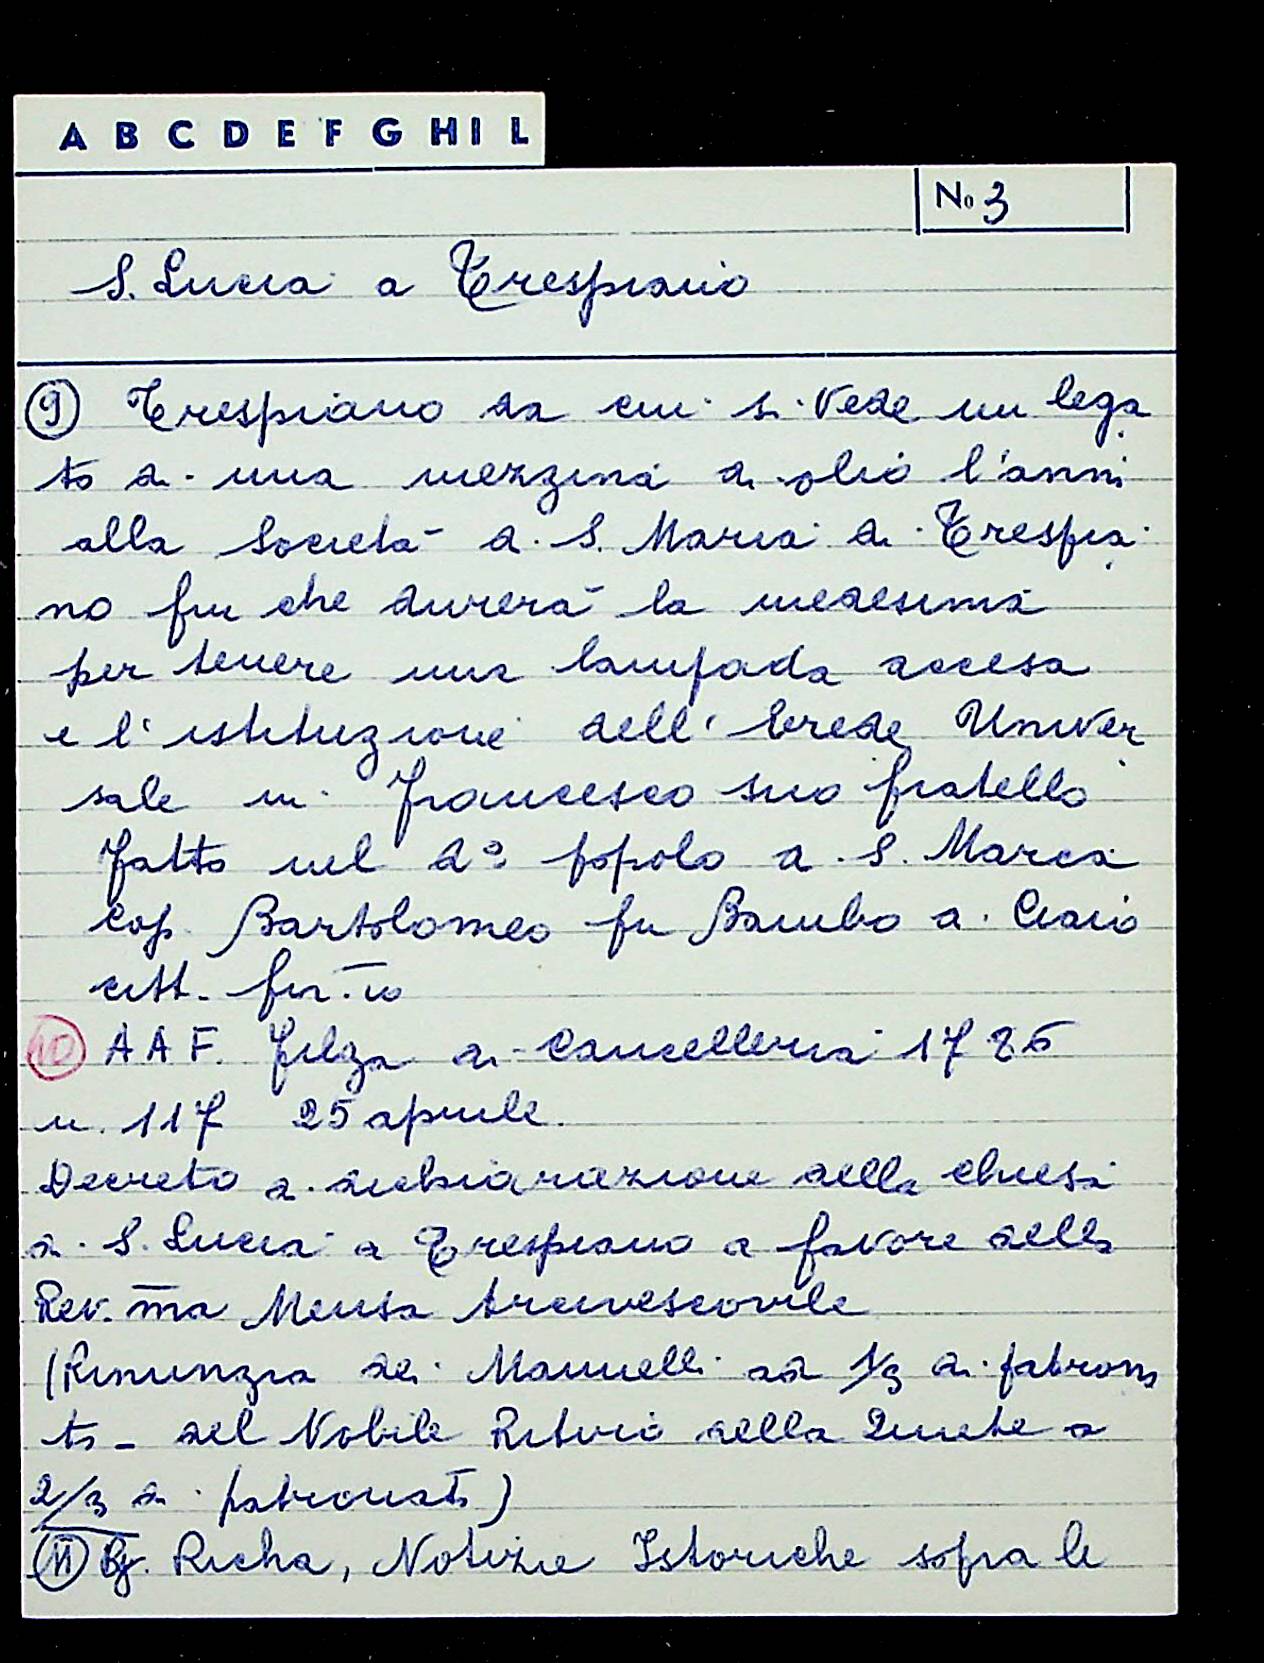 A B C D E F G H I L
No 3
S. Lucia a Trespiano
9 Trespiano da cui si vede un lega
to di una mezzina di olio l'anno
alla Società di S. Maria di Trespia
no fin che durerà la medesima
per tenere una lampada accesa
e l'istituzione dell'erede Univer
sale in Francesco suo fratello
fatto nel do popolo di S. Maria
cop. Bartolomeo fu Bambo di Ciaio
citt. fior.no
10 A A F. Filza di Cancelleria 1786
n. 117 25 aprile.
Decreto di dichiarazione della chiesa
di S. Lucia a Trespiano a favore della
Rev.ma Mensa Arcivescovile
(Rinunzia dei Mannelli ad 1/3 di patrona
to - del Nobile Ritiro della Quiete a
2/3 di patronato)
11 Cf. Richa, Notizie Istoriche sopra le